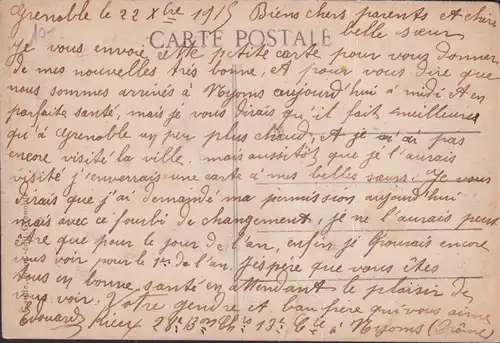 Grenoble le 22 Xbre 1915 Biens chers parents et chère
belle sœur
10-
CARTE POSTALE
Je vous envoie cette petite carte pour vous donner
de mes nouvelles très bonne, et pour vous dire que
nous sommes arrivés à Nyoms aujourd'hui à midi et en
parfaite santé, mais je vous dirais qu'il fait meilleures
qu'à Grenoble un peu plus chaud, et je n'ai pas
encore visité la ville, mais aussitôt que je l'aurais
visité j'enverrais une carte à mes belles sœurs. Je vous
dirais que j'ai demandé ma permission aujourd'hui
mais avec ce fourbi de changement, je ne l'aurais peut
être que pour le jour de l'an, enfin je pourais encore
vous voir pour le 1er de l'an. J'espère que vous êtes
tous en bonne santé en attendant le plaisir de
vous voir. Votre gendre et bau frère qui vous aime
Edouard Rieux 28e Bon Chrs 13e Cie à Nyoms (Drôme)